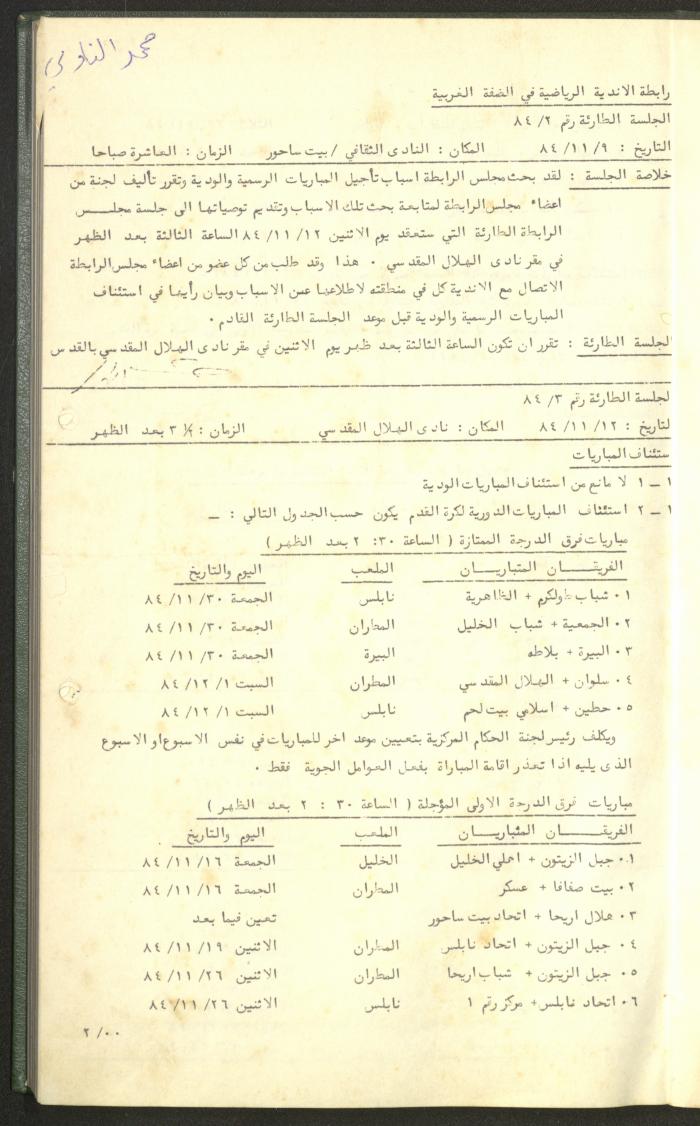 محمد
رابطة الاندية الرياضية في الضفة الغربية
الجلسة الطارئة رقم ٨٤/٢
التاريخ : ٨٤/١١/٩ المكان : النادى الثقافي / بيت ساحور الزمان : العاشرة صباحا
خلاصة الجلسة : لقد بحث مجلس الرابطة اسباب تأجيل المباريات الرسمية والودية وتقرر تأليف لجنة من
اعضاء مجلس الرابطة لمتابعة بحث تلك الاسباب وتقديم توصياتها الى جلسة مجلس
الرابطة الطارئة التي ستعقد يوم الاثنين ٨٤/١١/١٢ الساعة الثالثة بعد الظهر
في مقر نادى الهلال المقدسي . هذا وقد طلب من كل عضو من اعضاء مجلس الرابطة
الاتصال مع الاندية كل في منطقته لاطلاعها عن الاسباب وبيان رأيها في استئناف
المباريات الرسمية والودية قبل موعد الجلسة الطارئة القادم .
لجلسة الطارئة : تقرر ان تكون الساعة الثالثة بعد ظهر يوم الاثنين في مقر نادى الهلال المقدسي بالقدس
لجلسة الطارئة رقم ٨٤/٣
لتاريخ : ٨٤/١١/١٢ المكان : نادى الهلال المقدسي الزمان : ٣ ½ بعد الظهر
ستئناف المباريات
١ - ١ لا مانع من استئناف المباريات الودية
١ - ٢ استئناف المباريات الدورية لكرة القدم يكون حسب الجدول التالي : -
مباريات فرق الدرجة الممتازة ( الساعة ٣٠ : ٢ بعد الظهر )
الفريقان المتباريان الملعب اليوم والتاريخ
١٠ شباب طولكرم + الظاهرية نابلس الجمعة ٨٤/١١/٣٠
٢٠ الجمعية + شباب الخليل المطران الجمعة ٨٤/١١/٣٠
٣٠ البيرة + بلاطه البيرة الجمعة ٨٤/١١/٣٠
٤٠ سلوان + الهلال المقدسي المطران السبت ٨٤/١٢/١
٥٠ حطين + اسلامي بيت لحم نابلس السبت ٨٤/١٢/١
ويكلف رئيس لجنة الحكام المركزية بتعيين موعد اخر للمباريات في نفس الاسبوع او الاسبوع
الذى يليه اذا تعذر اقامة المباراة بفعل العوامل الجوية فقط .
مباريات فرق الدرجة الاولى المؤجلة ( الساعة ٣٠ : ٢ بعد الظهر )
الفريقان المتباريان الملعب اليوم والتاريخ
١٠ جبل الزيتون + اهلي الخليل الخليل الجمعة ٨٤/١١/١٦
٢٠ بيت صفافا + عسكر المطران الجمعة ٨٤/١١/١٦
٣٠ هلال اريحا + اتحاد بيت ساحور تعين فيما بعد
٤٠ جبل الزيتون + اتحاد نابلس المطران الاثنين ٨٤/١١/١٩
٥٠ جبل الزيتون + شباب اريحا المطران الاثنين ٨٤/١١/٢٦
٦٠ اتحاد نابلس + مركز رقم ١ نابلس الاثنين ٨٤/١١/٢٦
٢/٠٠